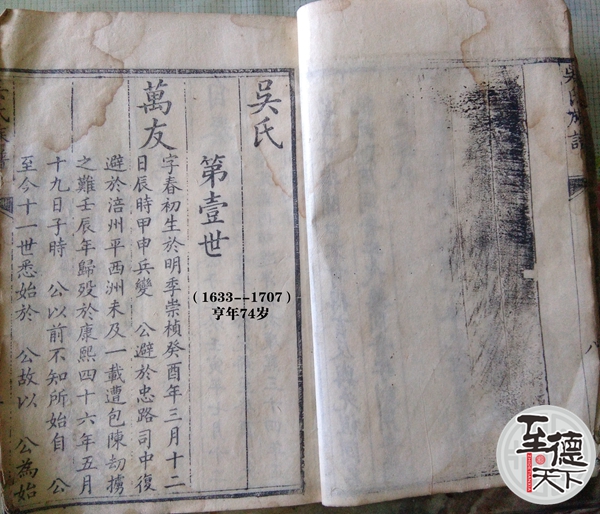 吳氏族譜
吳氏
第壹世
萬友
字春初生於明季崇楨癸酉年三月十二
日辰時甲申兵變 公避於忠路司中復
避於涪州平西洲未及一載遭包陳劫擄
之難壬辰年歸歿於康熙四十六年五月
十九日子時 公以前不知所始自 公
至今十一世悉始於 公故以 公為始
（1633--1707）
亨年74岁
至德天下